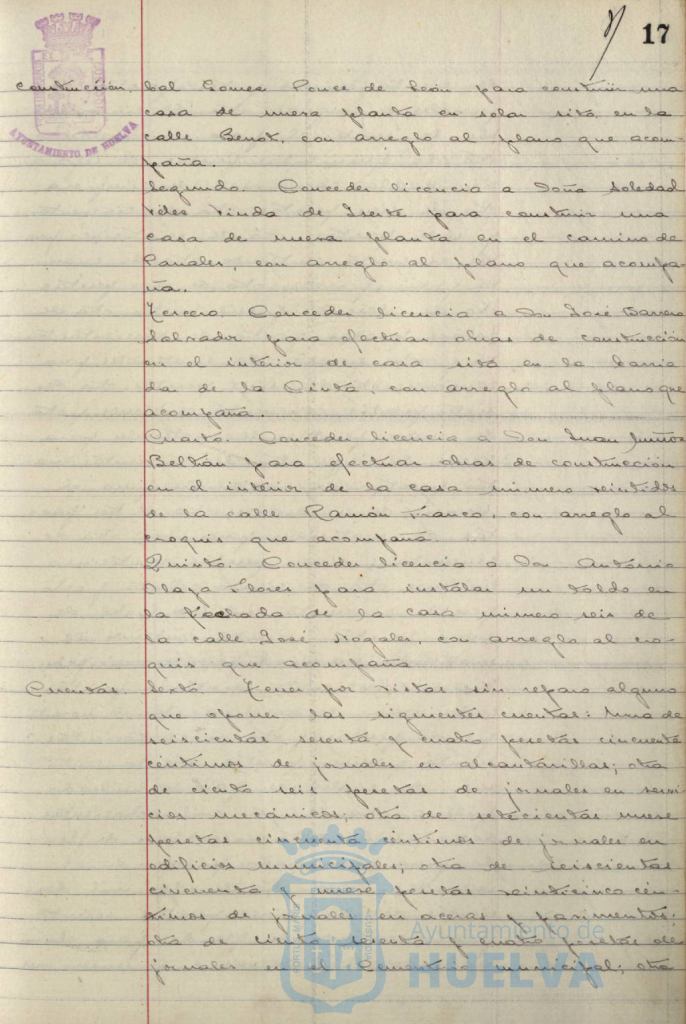 17
AYUNTAMIENTO DE HUELVA
construcción. bal Gomez Ponce de León para construir una
casa de nueva planta en solar sito en la
calle Benot, con arreglo al plano que acom-
paña.
Segundo. Conceder licencia a Doña Soledad
Viuda de para construir una
casa de nueva planta en el camino de
con arreglo al plano que acompa-
ña.
Tercero. Conceder licencia a Don José Barrero
Labrador para efectuar obras de construcción
en el interior de casa sita en la barria
da de la Cinta, con arreglo al plano que
acompaña.
Cuarto. Conceder licencia a Don Juan Muñoz
Beltrán para efectuar obras de construcción
en el interior de la casa número veintidós
de la calle Ramón Franco, con arreglo al
croquis que acompaña.
Quinto. Conceder licencia a Don Antonio
Olaya Flores para instalar un toldo en
la fachada de la casa número seis de
la calle José Nogales, con arreglo al cro-
quis que acompaña
Cuentas. Sexto. Tener por vistas sin reparo alguno
que oponer las siguientes cuentas: Una de
seiscientas sesenta y cuatro pesetas cincuenta
céntimos de jornales en alcantarillas; otra
de ciento seis pesetas de jornales en servi-
cios mecánicos; otra de setecientas nueve
pesetas cincuenta céntimos de jornales en
edificios municipales; otra de seiscientas
cincuenta y nueve pesetas veinticinco cén-
timos de jornales en aceras y pavimentos;
otra de ciento sesenta y cuatro pesetas de
jornales en el Cementerio municipal; otra
Ayuntamiento de
HUELVA